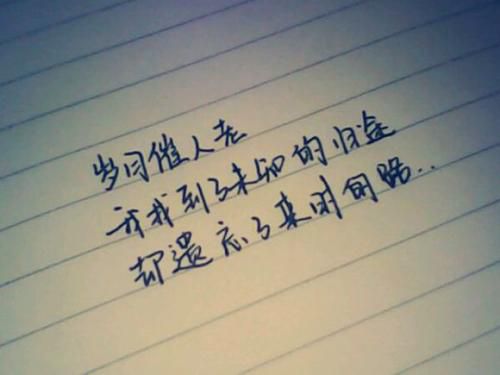 岁月催人老
找到了未知的归途
却遗忘了来时的路..